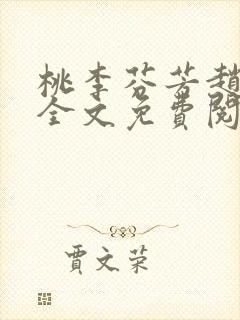 桃李芬芳趙
全文免費閱
賈文荣